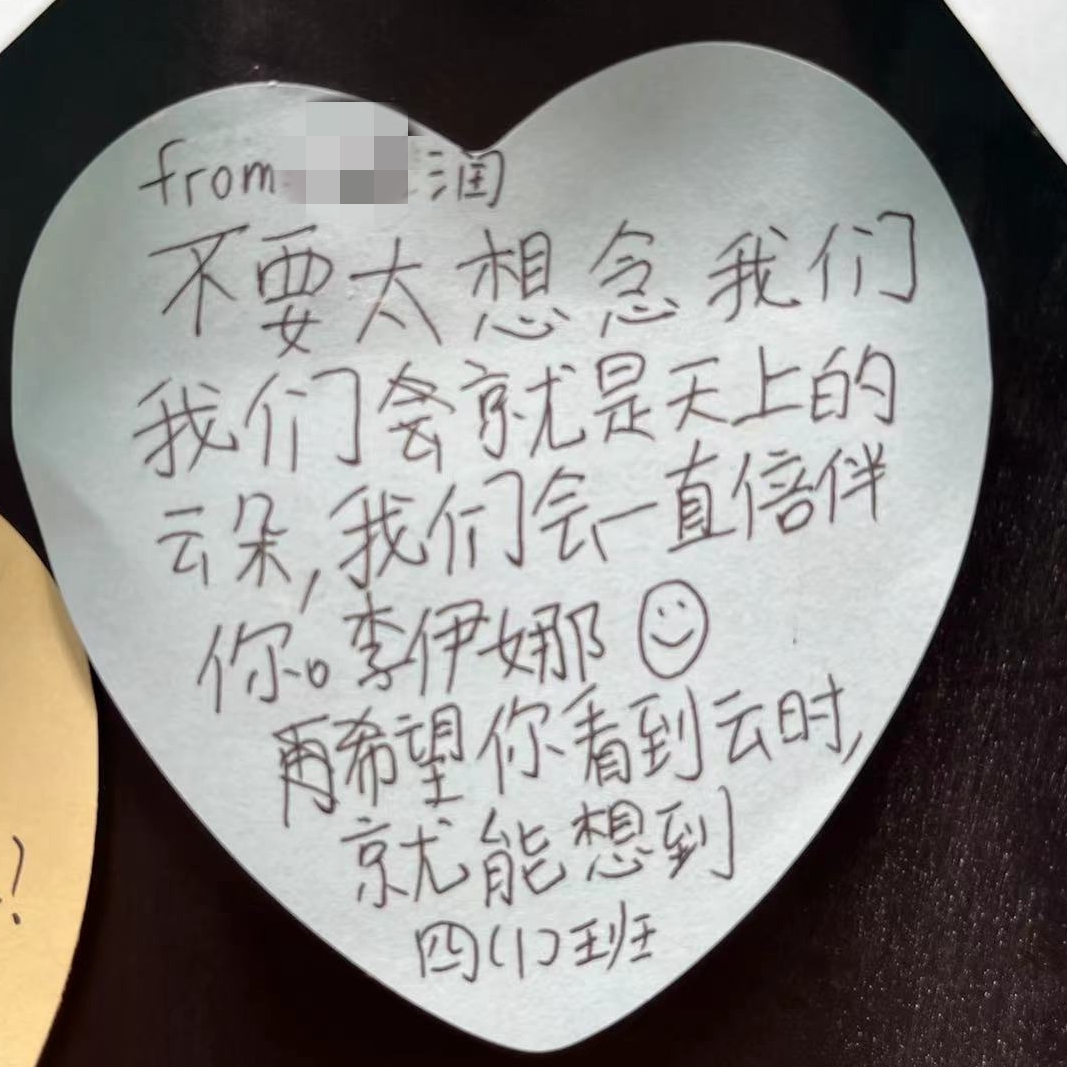 from 润
不要太想念我们
我们会就是天上的
云朵,我们会一直倍伴
你。李伊娜
再希望你看到云时,
就能想到
四(1)班
?